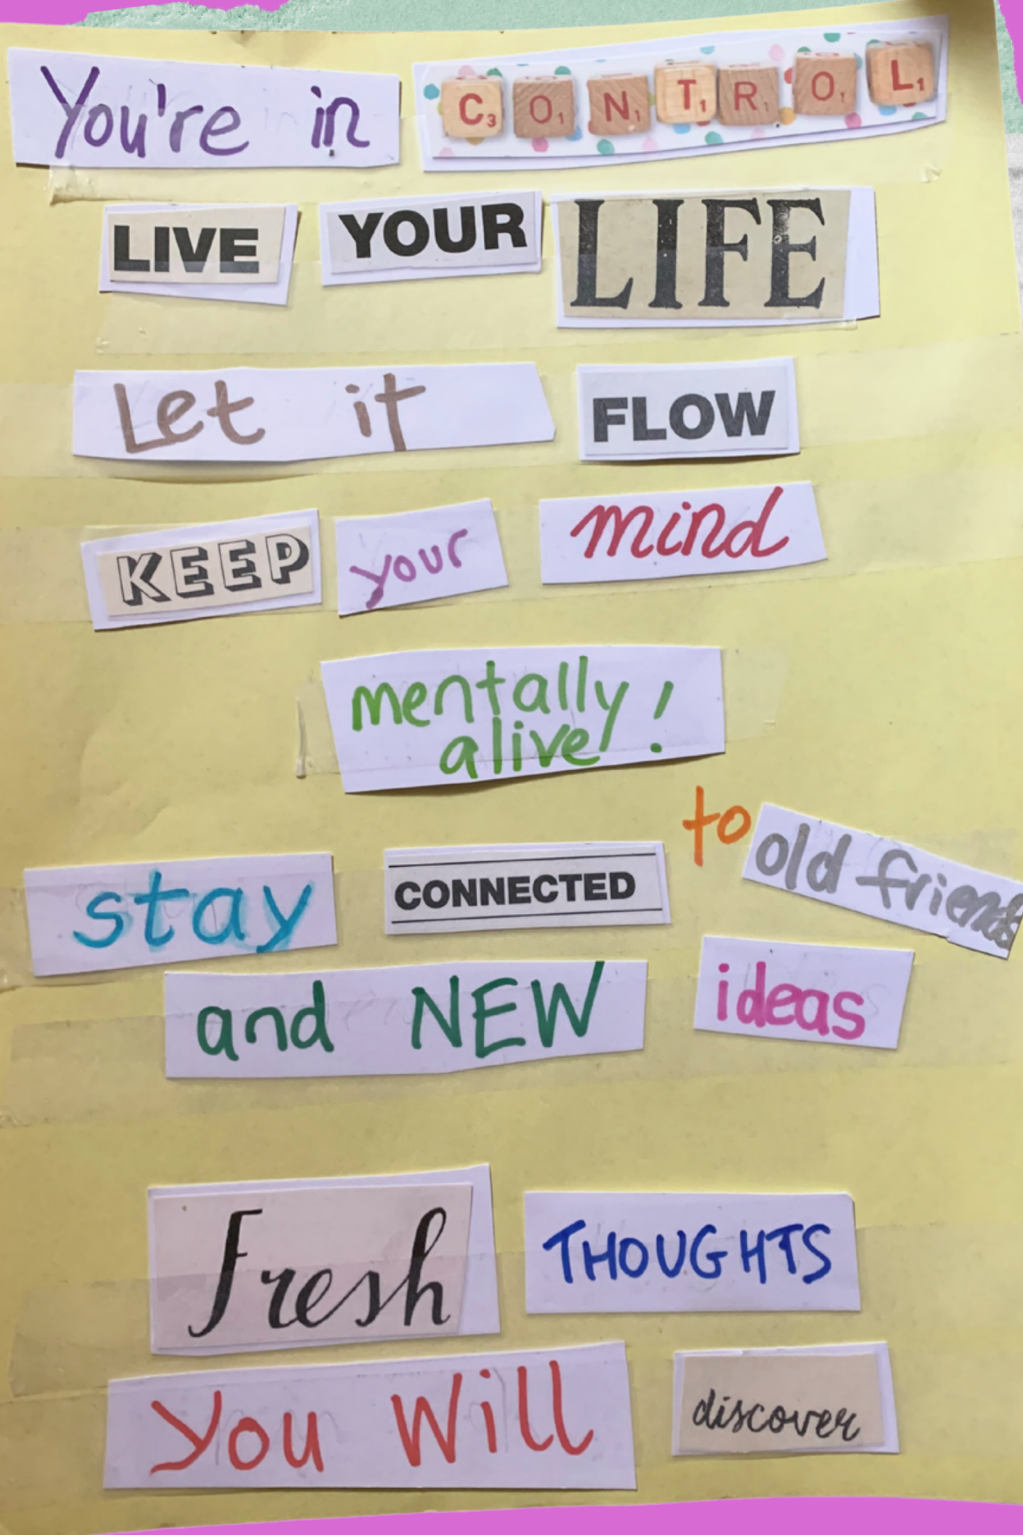 You're in CONTROL
LIVE YOUR LIFE
Let it FLOW
KEEP your mind
mentally
alive!
stay CONNECTED to old friends
and NEW ideas
Fresh THOUGHTS
You Will discover